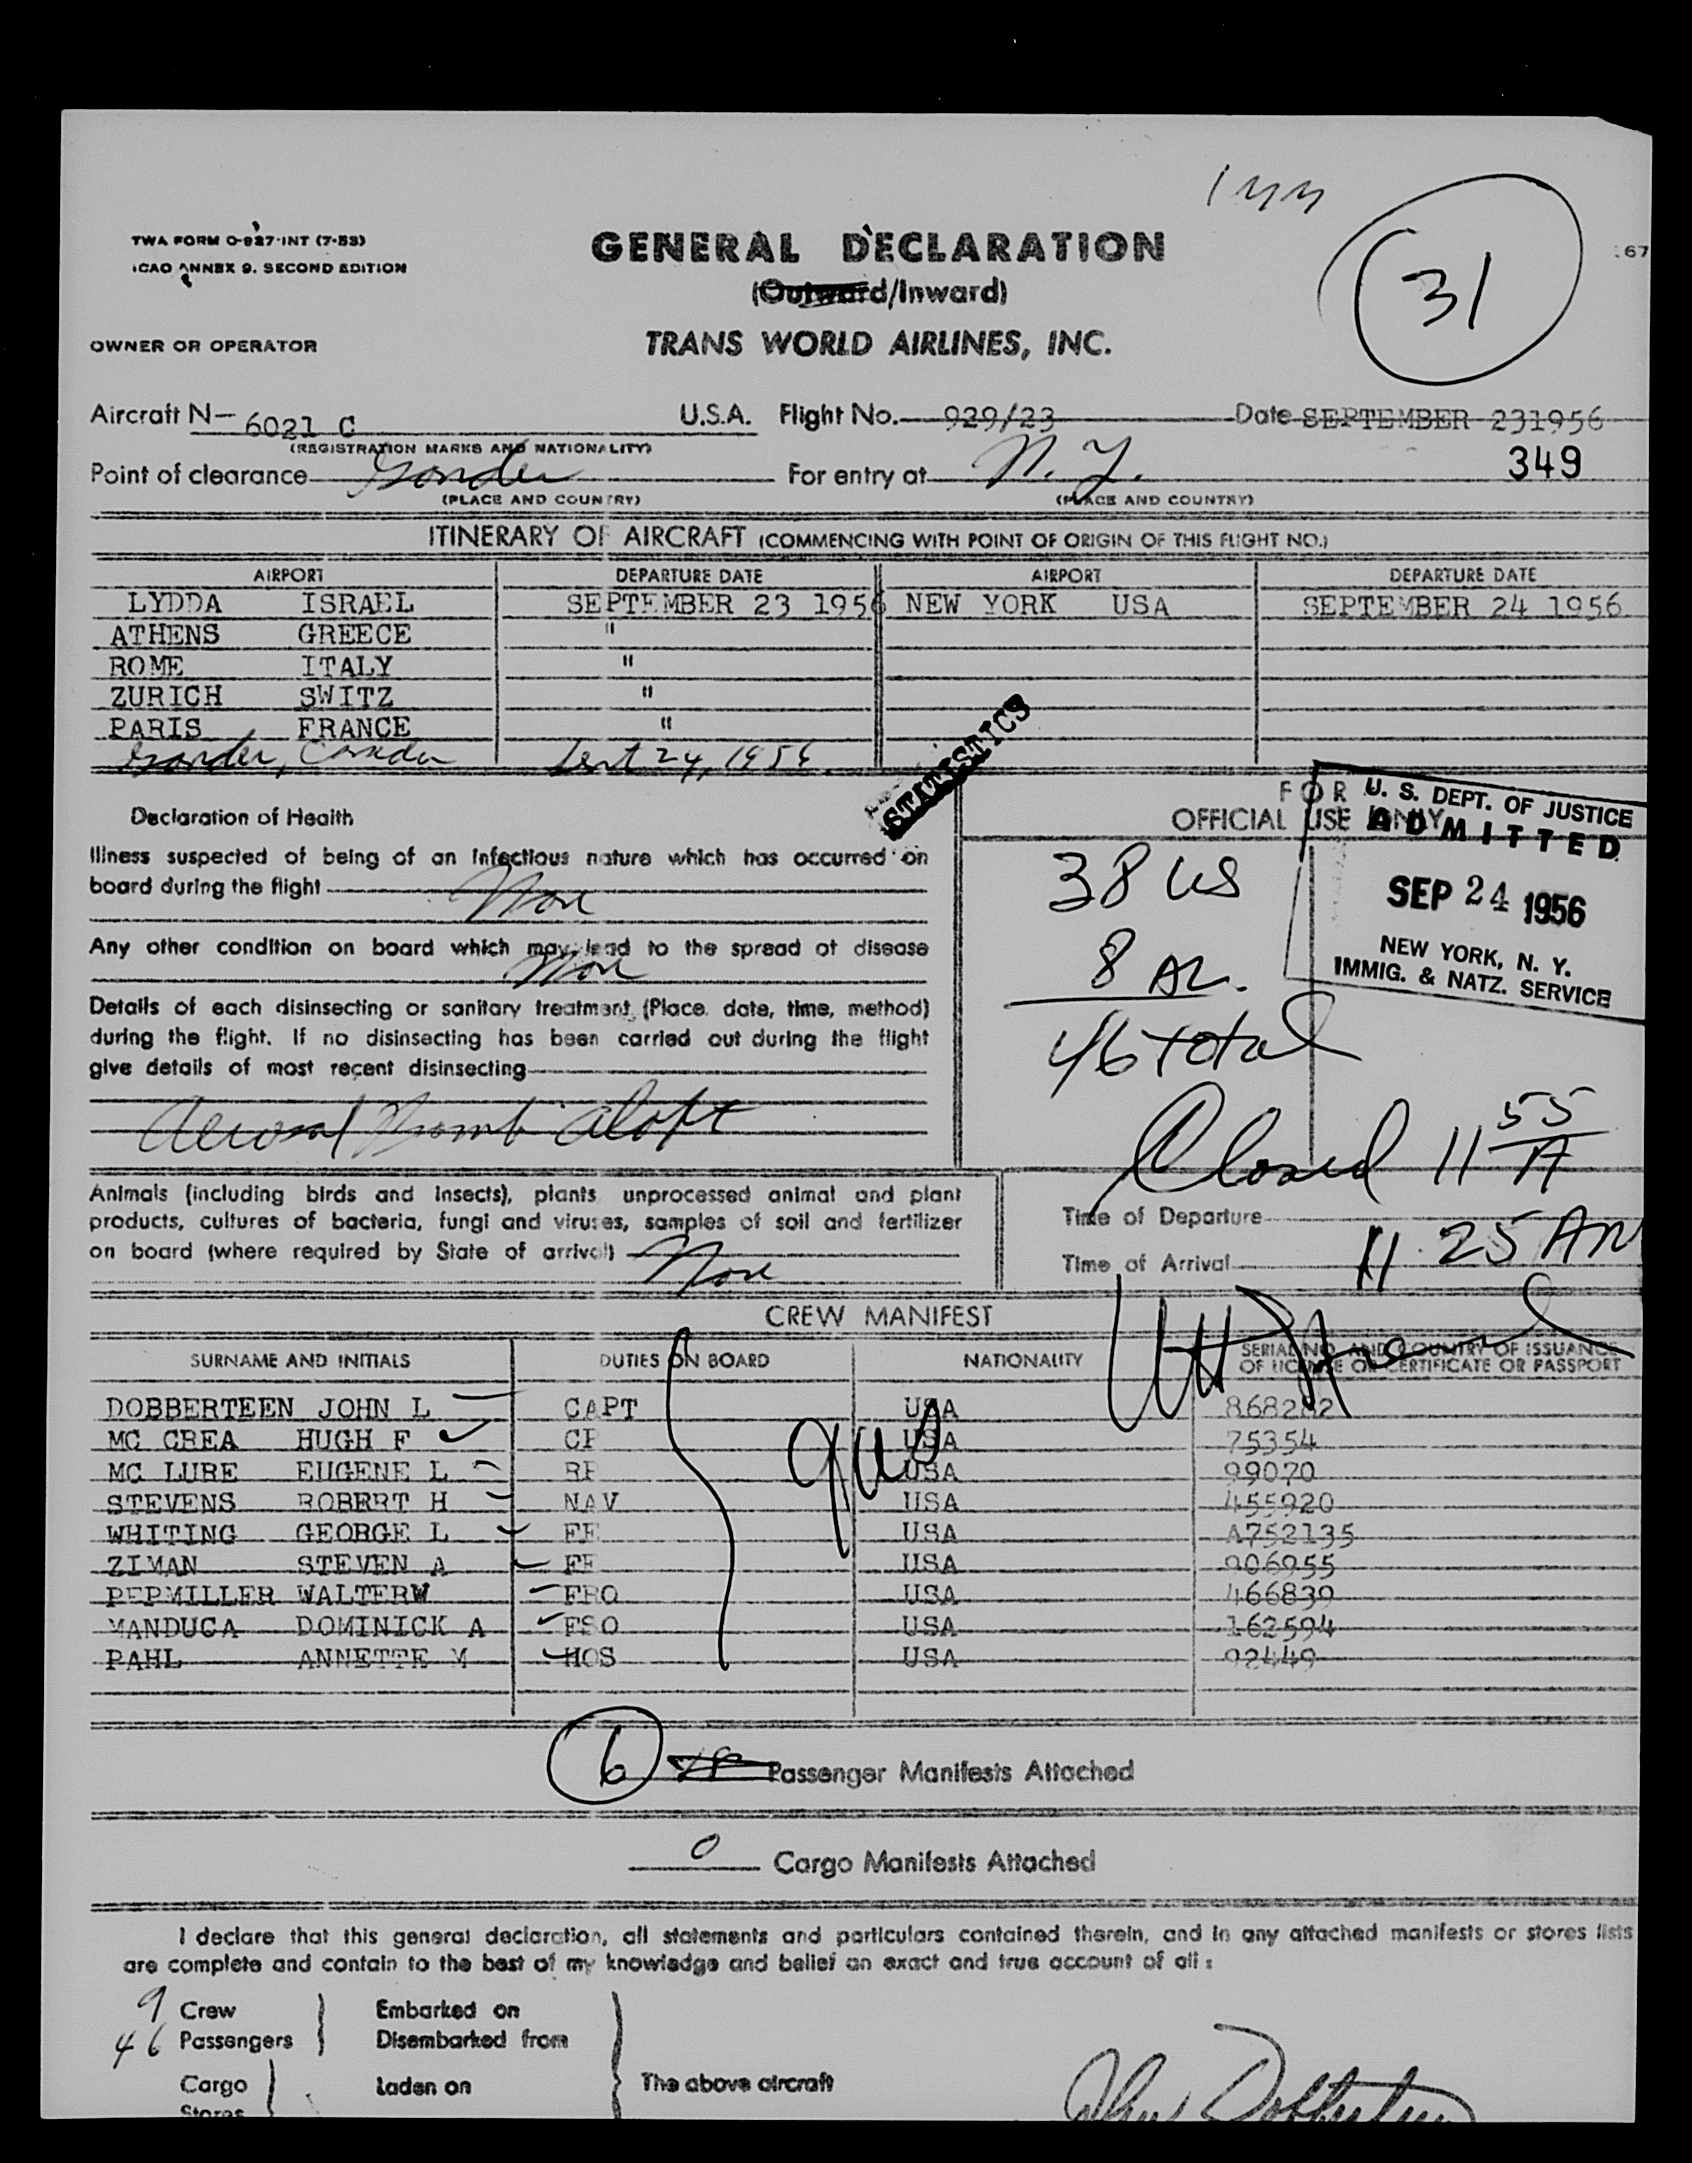 TWA FORM O-927-INT (7-53)
ICAO ANNEX 9. SECOND EDITION
GENERAL DECLARATION
(Outward/Inward)
31
67
OWNER OR OPERATOR
TRANS WORLD AIRLINES, INC.
Aircraft N- 6021 C U.S.A. Flight No. 929/23 Date SEPTEMBER 231956
(REGISTRATION MARKS AND NATIONALITY)
349
Point of clearance Gander For entry at N. Y.
(PLACE AND COUNTRY) (PLACE AND COUNTRY)
ITINERARY OF AIRCRAFT (COMMENCING WITH POINT OF ORIGIN OF THIS FLIGHT NO.)
AIRPORT DEPARTURE DATE AIRPORT DEPARTURE DATE
LYDDA ISRAEL SEPTEMBER 23 1956 NEW YORK USA SEPTEMBER 24 1956
ATHENS GREECE "
ROME ITALY "
ZURICH SWITZ "
PARIS FRANCE "
Gander, Canada Sept 24, 1956.
STATISTICS
Declaration of Health
Illness suspected of being of an infectious nature which has occurred on
board during the flight None
Any other condition on board which may lead to the spread of disease
None
Details of each disinsecting or sanitary treatment (Place, date, time, method)
during the flight. If no disinsecting has been carried out during the flight
give details of most recent disinsecting
Aerosol Bomb aloft
FOR
OFFICIAL USE ONLY
U. S. DEPT. OF JUSTICE
ADMITTED
SEP 24 1956
NEW YORK, N. Y.
IMMIG. & NATZ. SERVICE
38 US
8 AL.
46 total
Closed 11 55 A
Animals (including birds and insects), plants unprocessed animal and plant
products, cultures of bacteria, fungi and viruses, samples of soil and fertilizer
on board (where required by State of arrival) None
Time of Departure
Time of Arrival 11 25 AM
CREW MANIFEST
SURNAME AND INITIALS DUTIES ON BOARD NATIONALITY SERIAL NO. AND COUNTRY OF ISSUANCE
OF LICENSE OR CERTIFICATE OR PASSPORT
DOBBERTEEN JOHN L CAPT USA 868282
MC CREA HUGH F CP USA 75354
MC LURE EUGENE L RP USA 99070
STEVENS ROBERT H NAV USA 455920
WHITING GEORGE L FE USA A752135
ZIMAN STEVEN A FE USA 906955
PEPMILLER WALTERW FRO USA 466839
MANDUCA DOMINICK A FSO USA 162594
PAHL ANNETTE M HOS USA 92449
9 US
6 Passenger Manifests Attached
0 Cargo Manifests Attached
I declare that this general declaration, all statements and particulars contained therein, and in any attached manifests or stores lists
are complete and contain to the best of my knowledge and belief an exact and true account of all:
9 Crew Embarked on
46 Passengers Disembarked from
Cargo Laden on The above aircraft
Stores
John Dobberteen